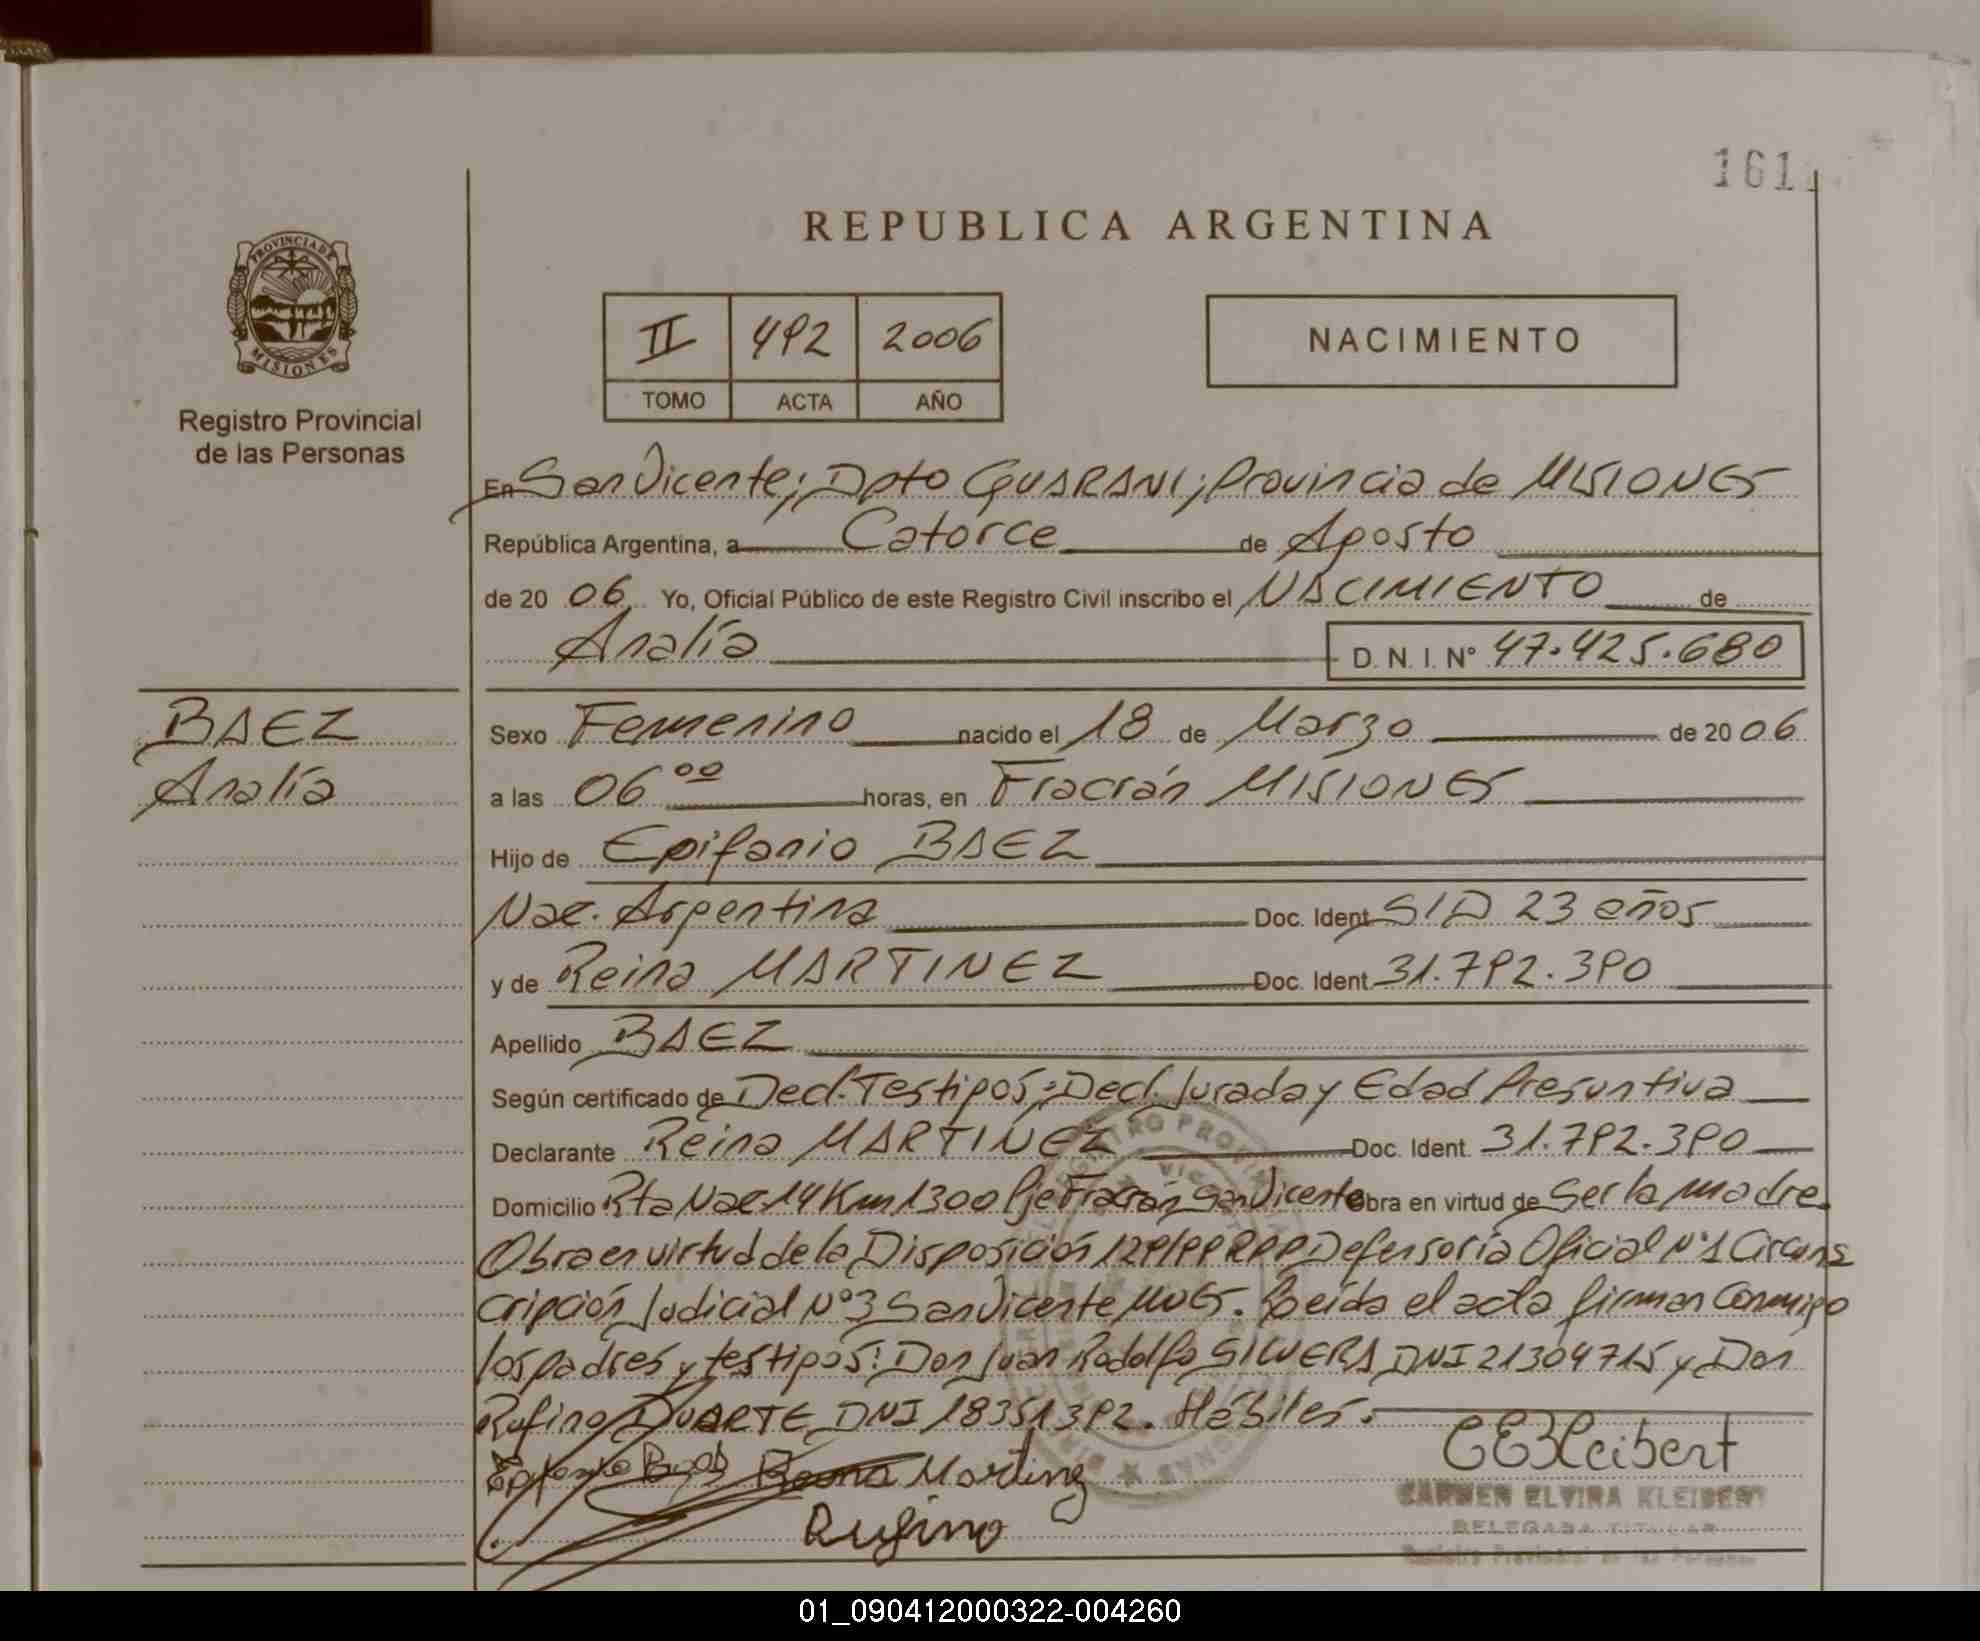 161
REPUBLICA ARGENTINA
PROVINCIA DE
MISIONES
Registro Provincial
de las Personas
II 492 2006
TOMO ACTA AÑO
NACIMIENTO
En San Vicente; Dpto GUARANI; Provincia de MISIONES
República Argentina, a Catorce de Agosto
de 20 06 Yo, Oficial Público de este Registro Civil inscribo el NACIMIENTO de
Analía D. N. I. N° 47.425.680
BAEZ
Analía
Sexo Femenino nacido el 18 de Marzo de 20 06
a las 06 00 horas, en Fracrán MISIONES
Hijo de Epifanio BAEZ
Nac. Argentina Doc. Ident S/D 23 años
y de Reina MARTINEZ Doc. Ident 31.792.390
Apellido BAEZ
Según certificado de Decl. Testigos; Decl. Jurada y Edad Presuntiva
Declarante Reina MARTINEZ Doc. Ident. 31.792.390
Domicilio Rta Nac 14 Km 1300 Pje Fracrán San Vicente Obra en virtud de Ser la madre.
Obra en virtud de la Disposición 129/99 RPP Defensoría Oficial N°1 Circuns
cripción Judicial N°3 San Vicente Mnes. Leída el acta firman Conmigo
los padres y testigos: Don Juan Rodolfo SILVERA DNI 21304715 y Don
Rufino DUARTE DNI 18351392. Hábiles.
Martinez
Rufino
CEKleibert
CARMEN ELVIRA KLEIBERT
DELEGADA TITULAR
Registro Provincial de las Personas
01_090412000322-004260